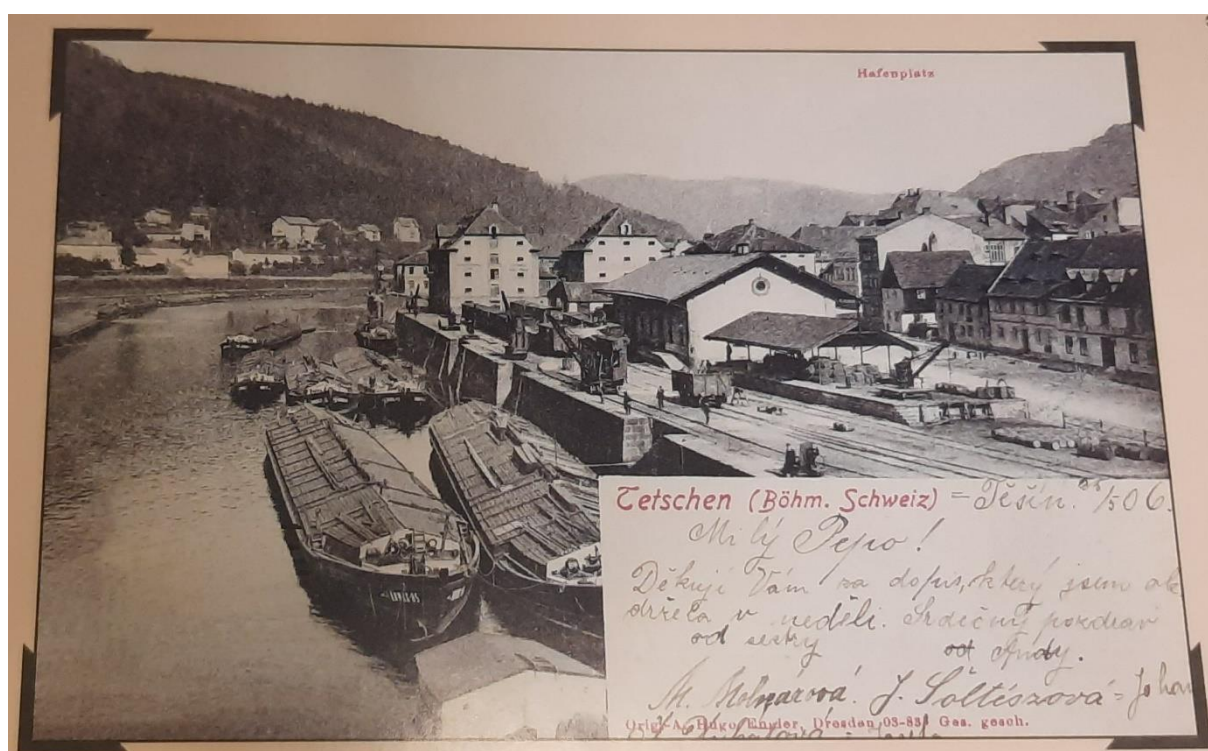 Hafenplatz
Tetschen (Böhm. Schweiz) = Těšín. 25/5 06.
Milý Pepo!
Děkuji Vám za dopis, který jsem ob
držela v neděli. Srdečný pozdrav
od sestry od Andy.
M. Molnárová. J. Šoltészová = Johan
Orig.-A. Hugo Engler, Dresden 03-83 Ges. gesch.